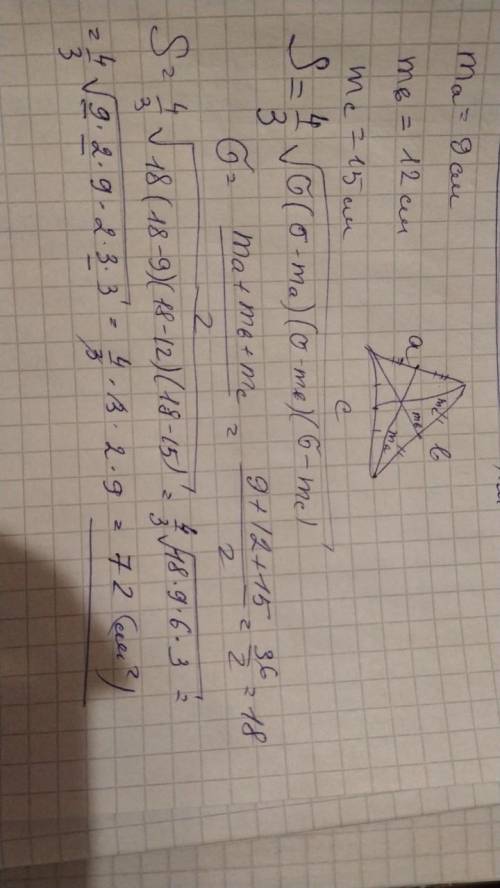 mₐ = 9 см
mв = 12 см
mc = 15 см
a
в
c
mc
mв
mₐ
S = 4/3 √(σ(σ-mₐ)(σ-mв)(σ-mc))
σ = (mₐ + mв + mc)/2 = (9+12+15)/2 = 36/2 = 18
S = 4/3 √(18(18-9)(18-12)(18-15)) = 4/3 √(18·9·6·3) =
= 4/3 √(9·2·9·2·3·3) = 4/3 · 3 · 2 · 9 = 72 (см²)